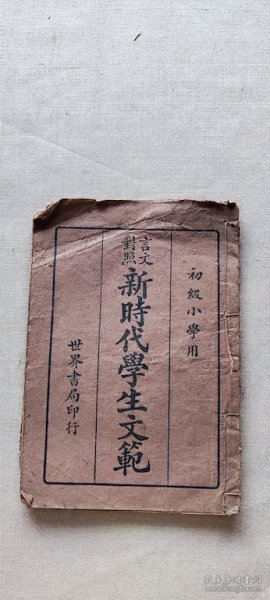 初級小學用
言文
對照
新時代學生文範
世界書局印行